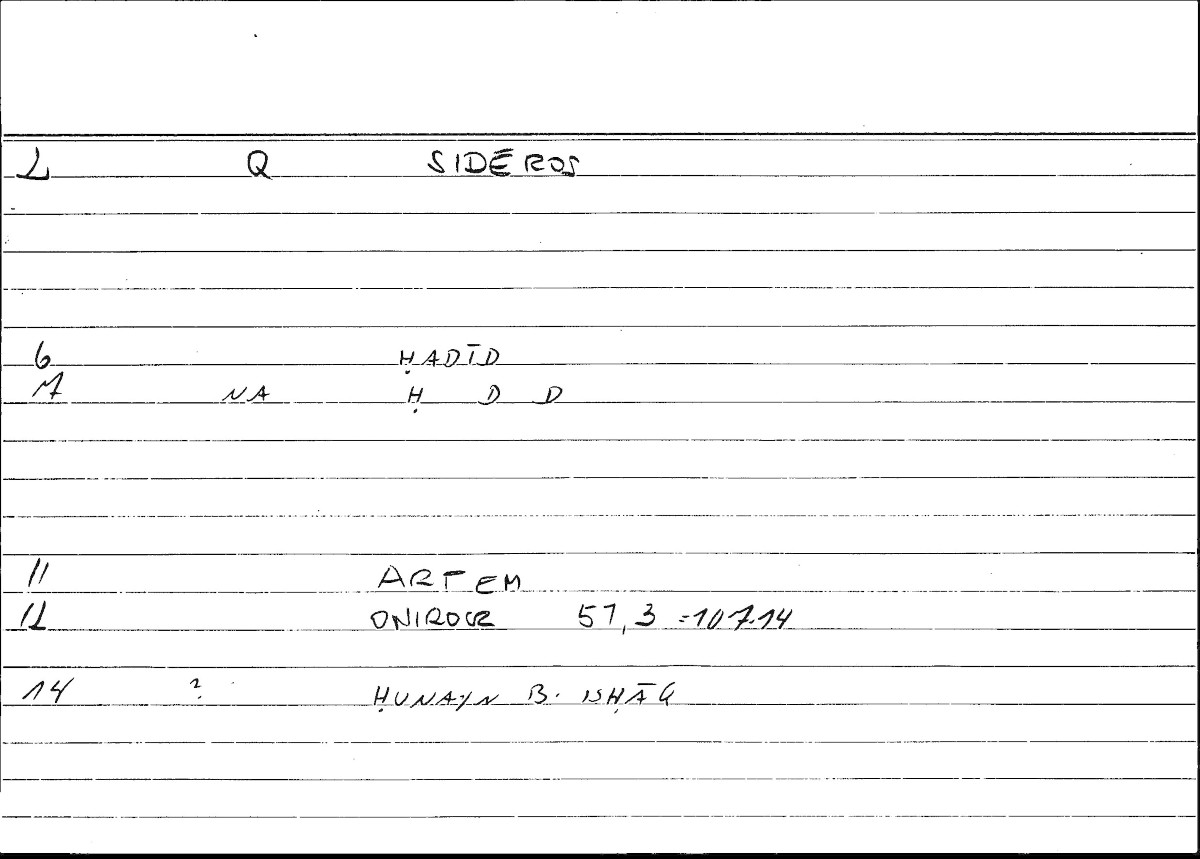 2 Q SIDĒROS
6 ḤADĪD
7 NA Ḥ D D
11 ARTEM
12 ONIROCR 57,3 =107.14
14 ? ḤUNAYN B. ISḤĀQ